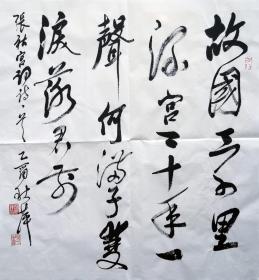 故國三千里
深宫二十年一
聲何滿子雙
淚落君前
張祜宫詞詩一首乙酉秋萍